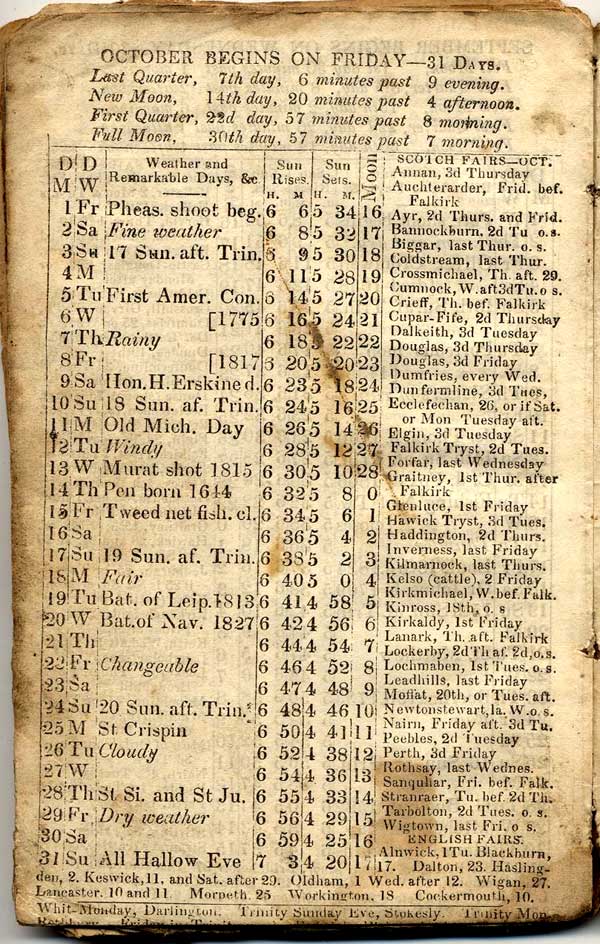 OCTOBER BEGINS ON FRIDAY—31 DAYS.
Last Quarter, 7th day, 6 minutes past 9 evening.
New Moon, 14th day, 20 minutes past 4 afternoon.
First Quarter, 22d day, 57 minutes past 8 morning.
Full Moon, 30th day, 57 minutes past 7 morning.
D M D W Weather and Remarkable Days, &c. Sun Rises. H. M Sun Sets. H. M. Moon
1 Fr Pheas. shoot beg. 6 6 5 34 16
2 Sa Fine weather 6 8 5 32 17
3 Su 17 Sun. aft. Trin. 6 9 5 30 18
4 M 6 11 5 28 19
5 Tu First Amer. Con. 6 14 5 27 20
6 W [1775 6 16 5 24 21
7 Th Rainy 6 18 5 22 22
8 Fr [1817 6 20 5 20 23
9 Sa Hon. H. Erskine d. 6 23 5 18 24
10 Su 18 Sun. af. Trin. 6 24 5 16 25
11 M Old Mich. Day 6 26 5 14 26
12 Tu Windy 6 28 5 12 27
13 W Murat shot 1815 6 30 5 10 28
14 Th Pen born 1644 6 32 5 8 0
15 Fr Tweed net fish. cl. 6 34 5 6 1
16 Sa 6 36 5 4 2
17 Su 19 Sun. af. Trin. 6 38 5 2 3
18 M Fair 6 40 5 0 4
19 Tu Bat. of Leip. 1813 6 41 4 58 5
20 W Bat. of Nav. 1827 6 42 4 56 6
21 Th 6 44 4 54 7
22 Fr Changeable 6 46 4 52 8
23 Sa 6 47 4 48 9
24 Su 20 Sun. aft. Trin. 6 48 4 46 10
25 M St Crispin 6 50 4 41 11
26 Tu Cloudy 6 52 4 38 12
27 W 6 54 4 36 13
28 Th St Si. and St Ju. 6 55 4 33 14
29 Fr Dry weather 6 56 4 29 15
30 Sa 6 59 4 25 16
31 Su All Hallow Eve 7 3 4 20 17
SCOTCH FAIRS—OCT.
Annan, 3d Thursday
Auchterarder, Frid. bef.
Falkirk
Ayr, 2d Thurs. and Frid.
Bannockburn, 2d Tu o.s.
Biggar, last Thur. o. s.
Coldstream, last Thur.
Crossmichael, Th. aft. 29.
Cumnock, W. aft 3d Tu. o s.
Crieff, Th. bef. Falkirk
Cupar-Fife, 2d Thursday
Dalkeith, 3d Tuesday
Douglas, 3d Thursday
Douglas, 3d Friday
Dumfries, every Wed.
Dunfermline, 3d Tues,
Ecclefechan, 26, or if Sat.
or Mon Tuesday aft.
Elgin, 3d Tuesday
Falkirk Tryst, 2d Tues.
Forfar, last Wednesday
Graitney, 1st Thur. after
Falkirk
Glenluce, 1st Friday
Hawick Tryst, 3d Tues.
Haddington, 2d Thurs.
Inverness, last Friday
Kilmarnock, last Thurs.
Kelso (cattle), 2 Friday
Kirkmichael, W. bef. Falk.
Kinross, 18th, o. s
Kirkaldy, 1st Friday
Lanark, Th. aft. Falkirk
Lockerby, 2d Th af. 2d, o.s.
Lochmaben, 1st Tues. o.s.
Leadhills, last Friday
Moffat, 20th, or Tues. aft.
Newtonstewart, la. W. o.s.
Nairn, Friday aft. 3d Tu.
Peebles, 2d Tuesday
Perth, 3d Friday
Rothsay, last Wednes.
Sanquhar, Fri. bef. Falk.
Stranraer, Tu. bef. 2d Th.
Tarbolton, 2d Tues. o. s.
Wigtown, last Fri. o s.
ENGLISH FAIRS.
Alnwick, 1 Tu. Blackburn,
17. Dalton, 23. Hasling-
den, 2. Keswick, 11, and Sat. after 29. Oldham, 1 Wed. after 12. Wigan, 27.
Lancaster, 10 and 11. Morpeth, 25 Workington, 18 Cockermouth, 10.
Whit-Monday, Darlington. Trinity Sunday Eve, Stokesly. Trinity Mon